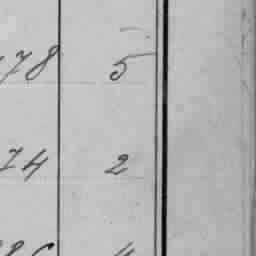 78 5
74 2